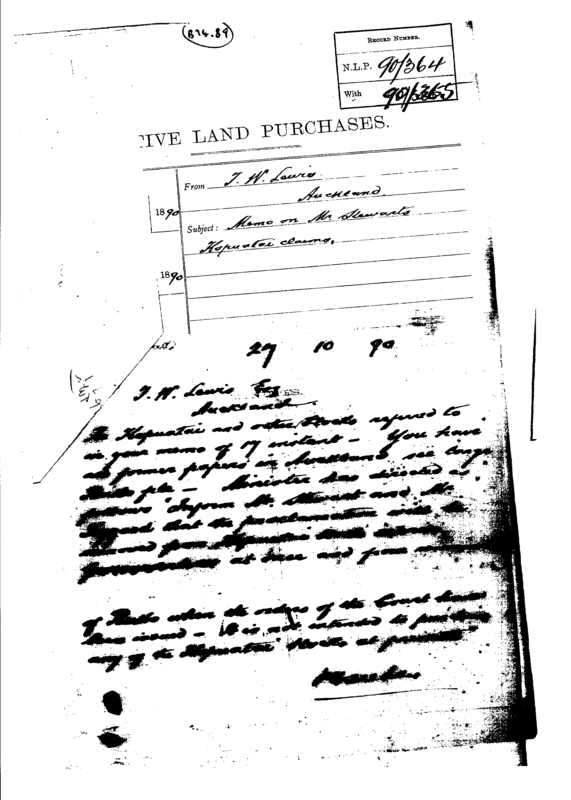 B74.89
RECORD NUMBER.
N.L.P. 90/364
With 90/365
TIVE LAND PURCHASES.
From T. W. Lewis
Auckland.
1890
Subject: Memo on Mr Stewarts
Hopuatai claims.
1890
27 10 90
T. W. Lewis Esq
Auckland.
Hopuatai and other blocks referred to
in your memo of 17 instant - You have
all former papers in Auckland see large
file - Minister has directed as
follows "Inform Mr. Stewart and Mr
that the proclamation will be
removed from Hopuatai
at once and from
of when the orders of the Court have
been issued - It is not intended to purchase
any of the Hopuatai blocks at present"